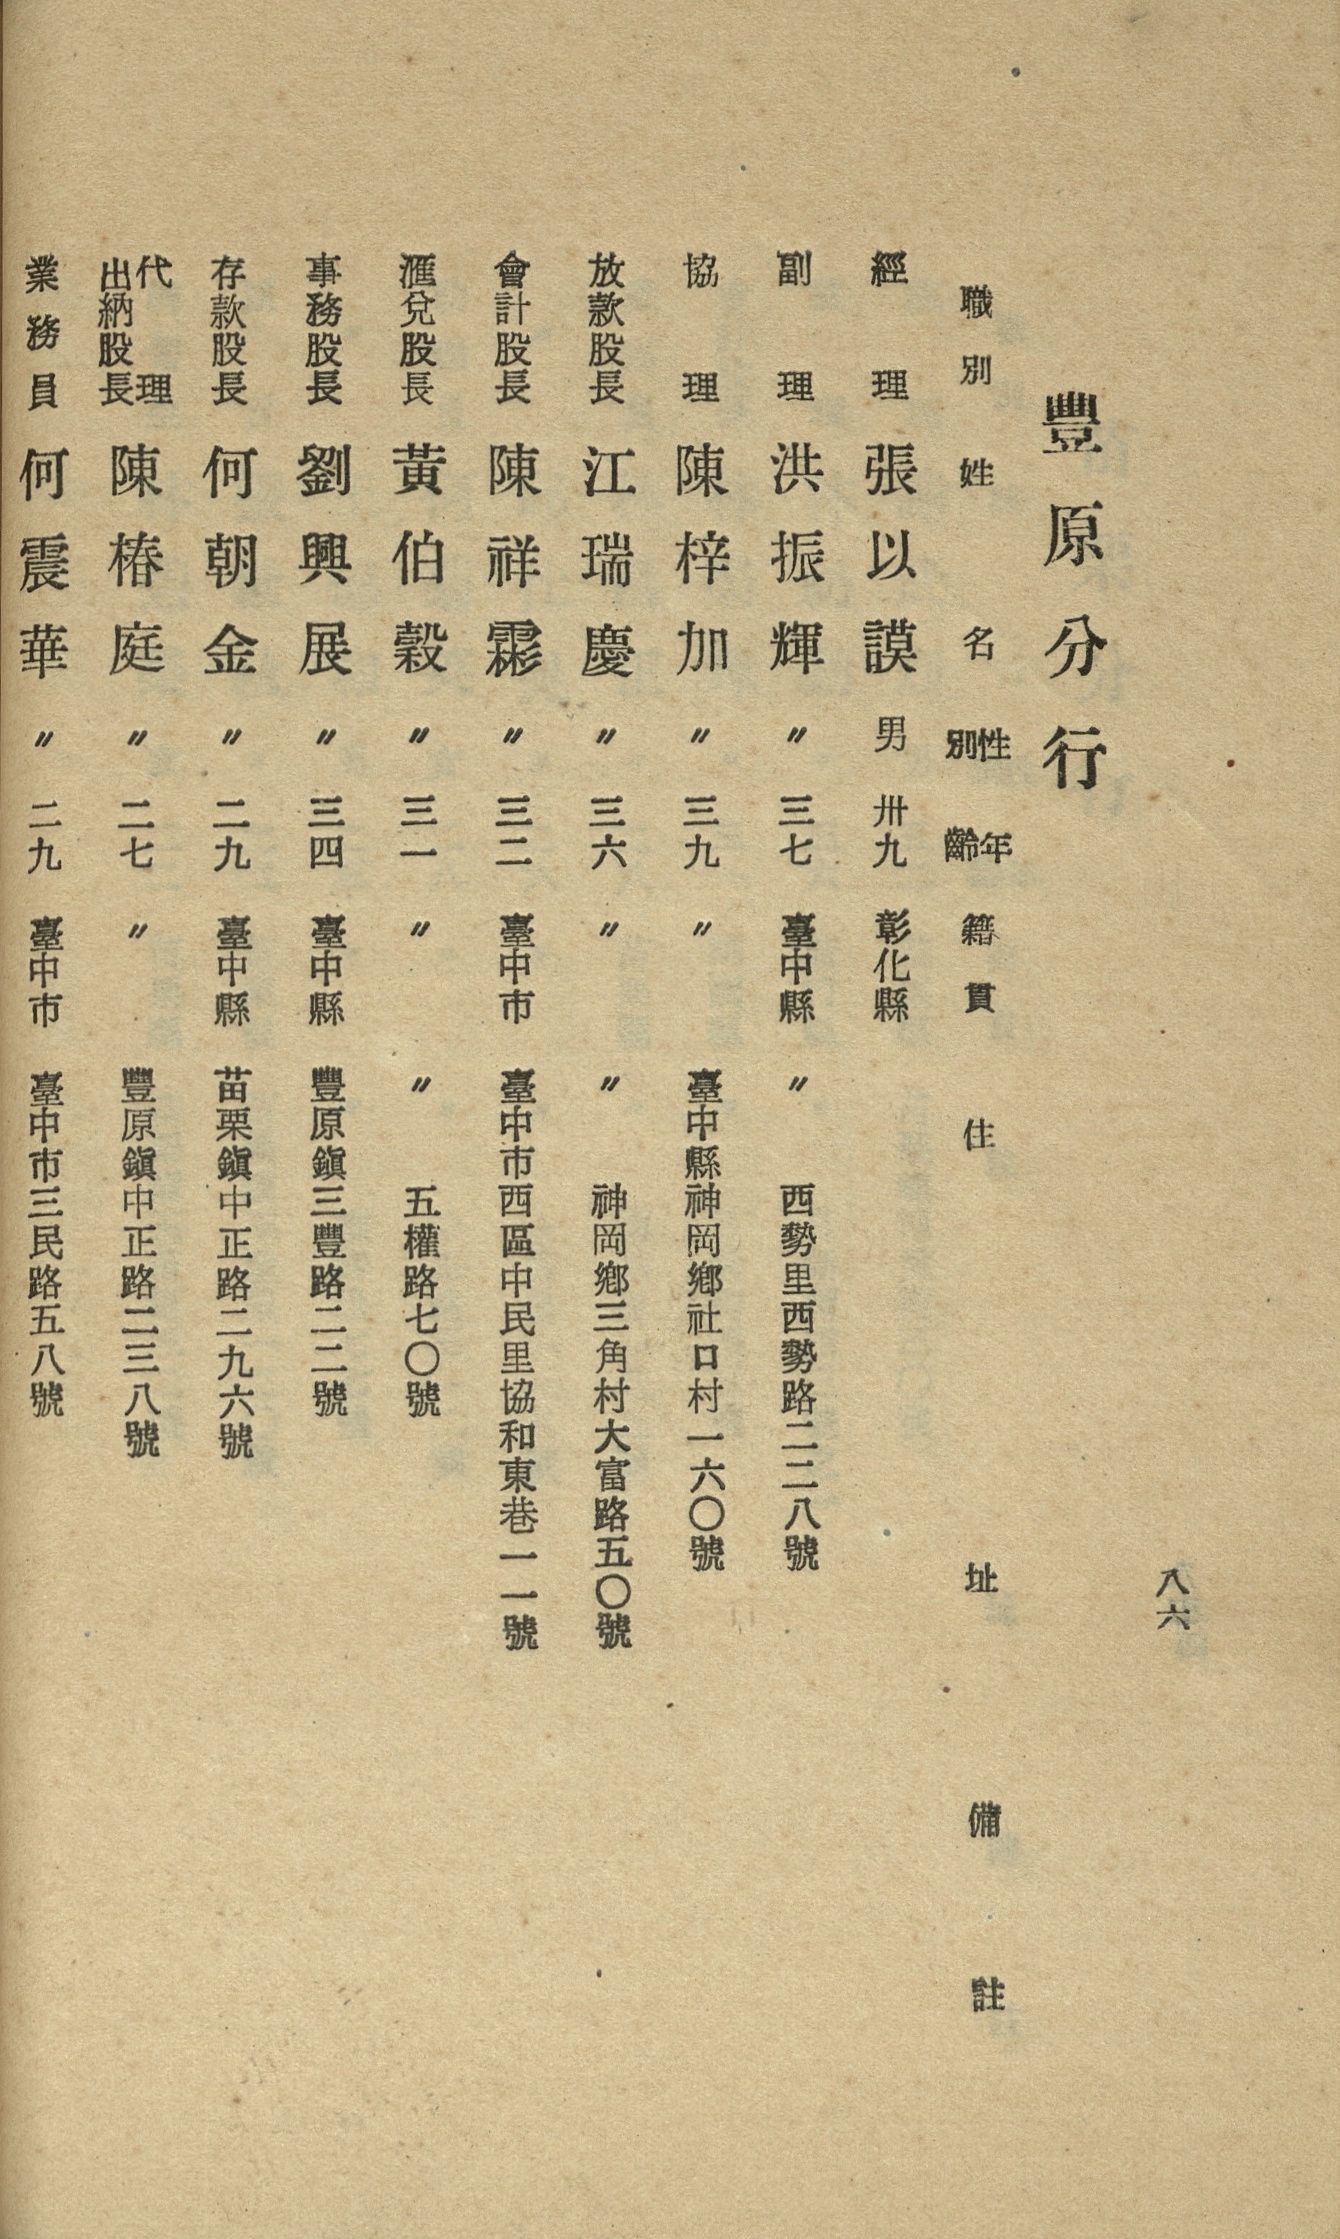 八六
豐原分行
職別 姓名 性別 年齡 籍貫 住址 備註
經理 張以謨 男 卅九 彰化縣
副理 洪振輝 〃 三七 臺中縣 〃 西勢里西勢路二二八號
協理 陳梓加 〃 三九 〃 臺中縣神岡鄉社口村一六〇號
放款股長 江瑞慶 〃 三六 〃 〃 神岡鄉三角村大富路五〇號
會計股長 陳祥霖 〃 三二 臺中市 臺中市西區中民里協和東巷一一號
滙兌股長 黃伯穀 〃 三一 〃 〃 五權路七〇號
事務股長 劉興展 〃 三四 臺中縣 豐原鎭三豐路二二號
存款股長 何朝金 〃 二九 臺中縣 苗栗鎭中正路二九六號
代理出納股長 陳椿庭 〃 二七 〃 豐原鎭中正路二三八號
業務員 何震華 〃 二九 臺中市 臺中市三民路五八號